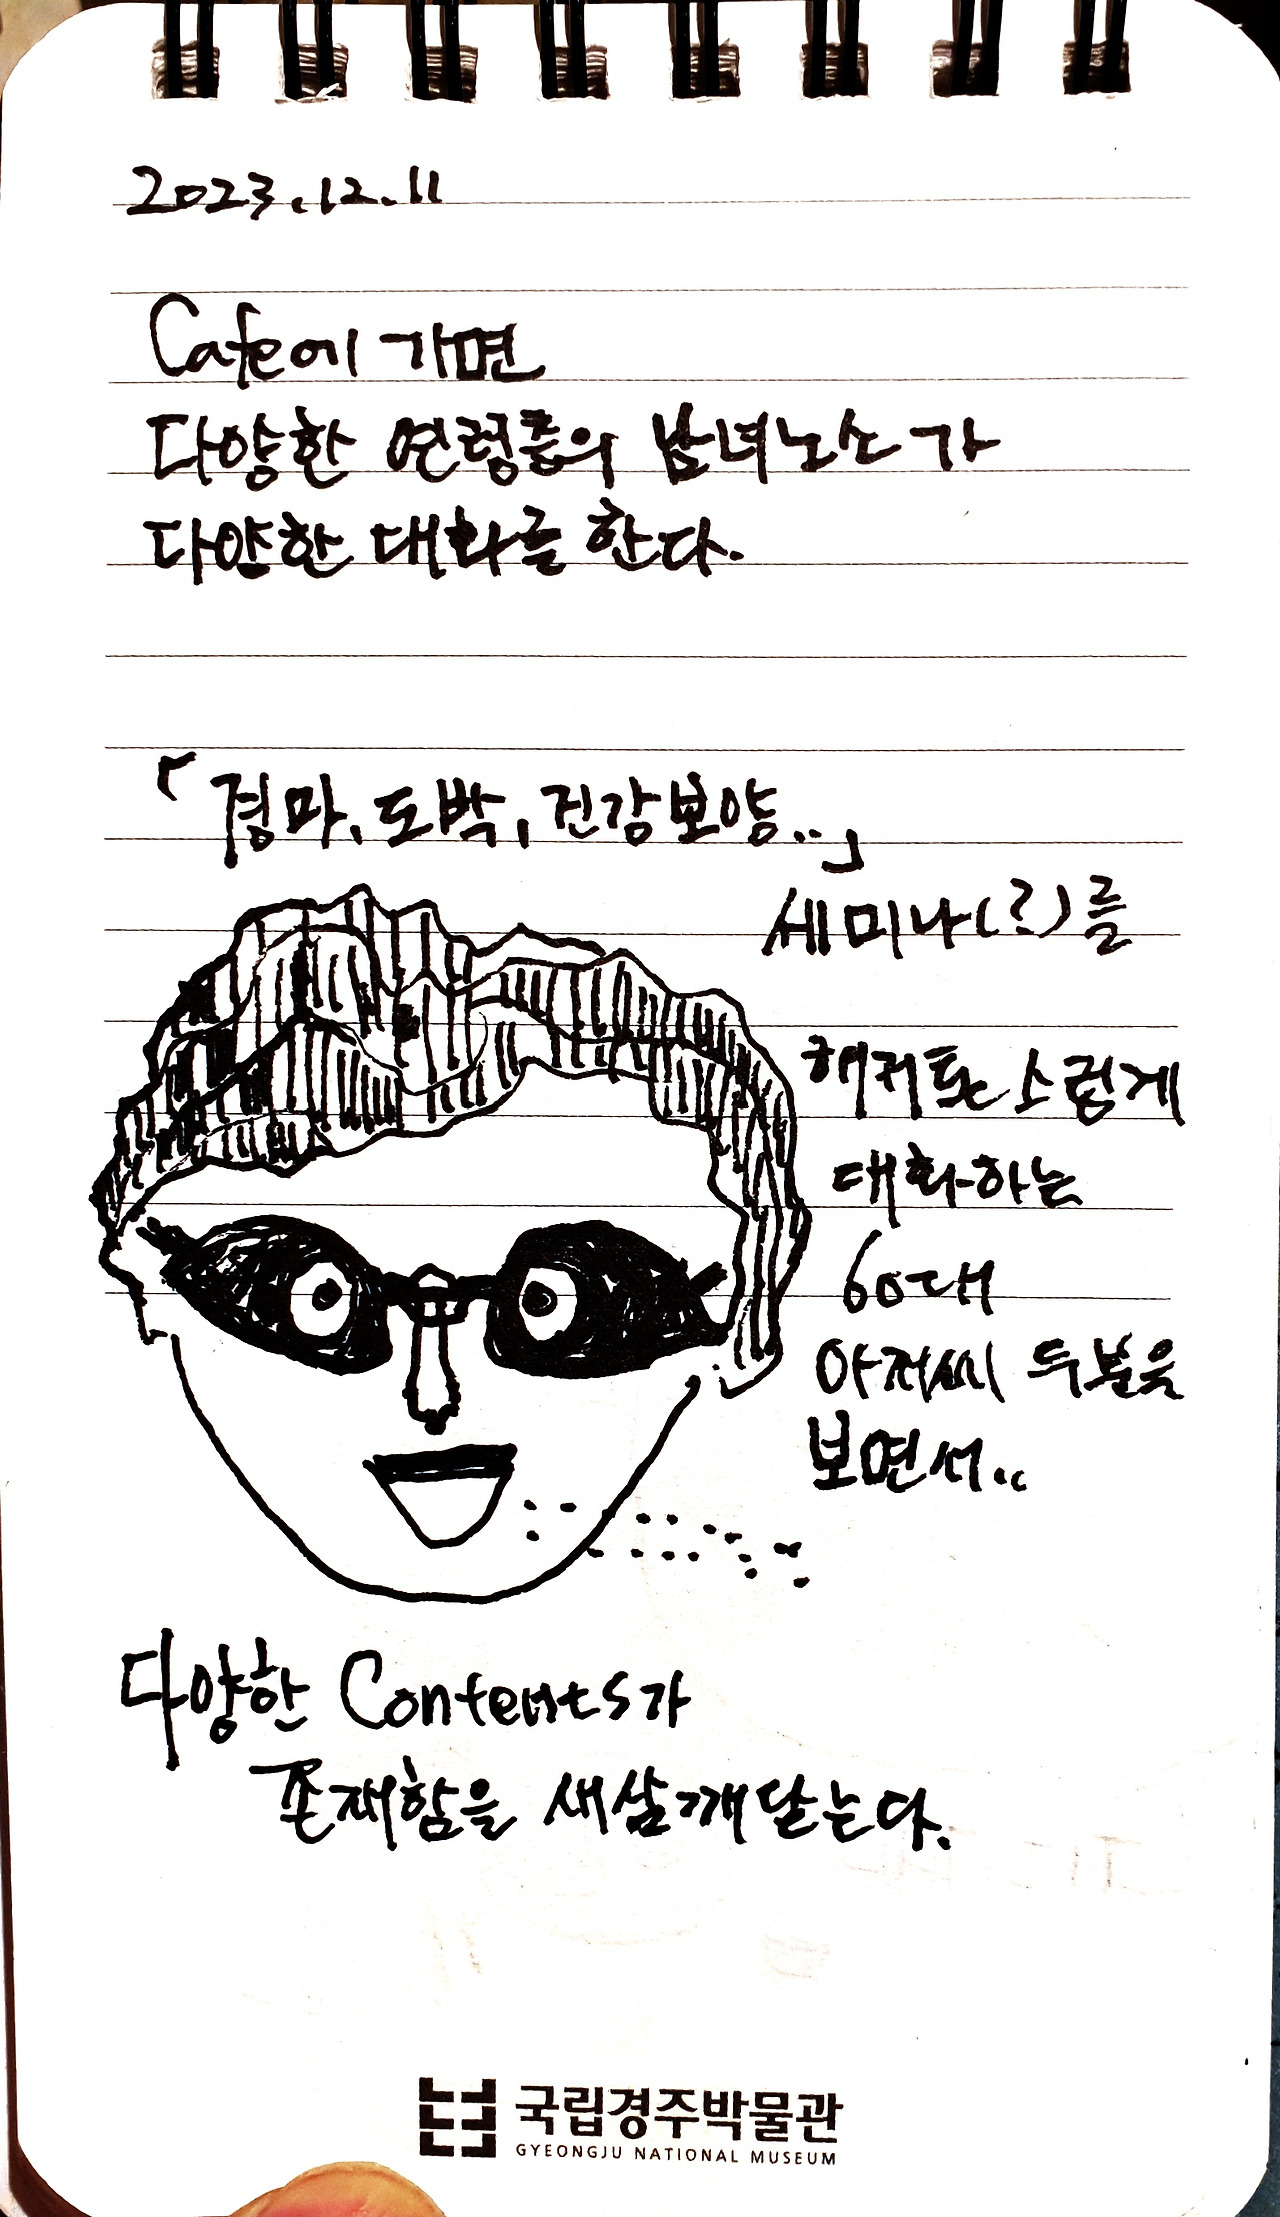 2023.12.11
Cafe에 가면
다양한 연령층의 남녀노소가
다양한 대화를 한다.
「경마, 도박, 건강보양..」
세미나(?)를
대화하는
60대
아저씨 두분을
보면서..
다양한 Contents가
존재함을 새삼 깨닫는다.
국립경주박물관
GYEONGJU NATIONAL MUSEUM